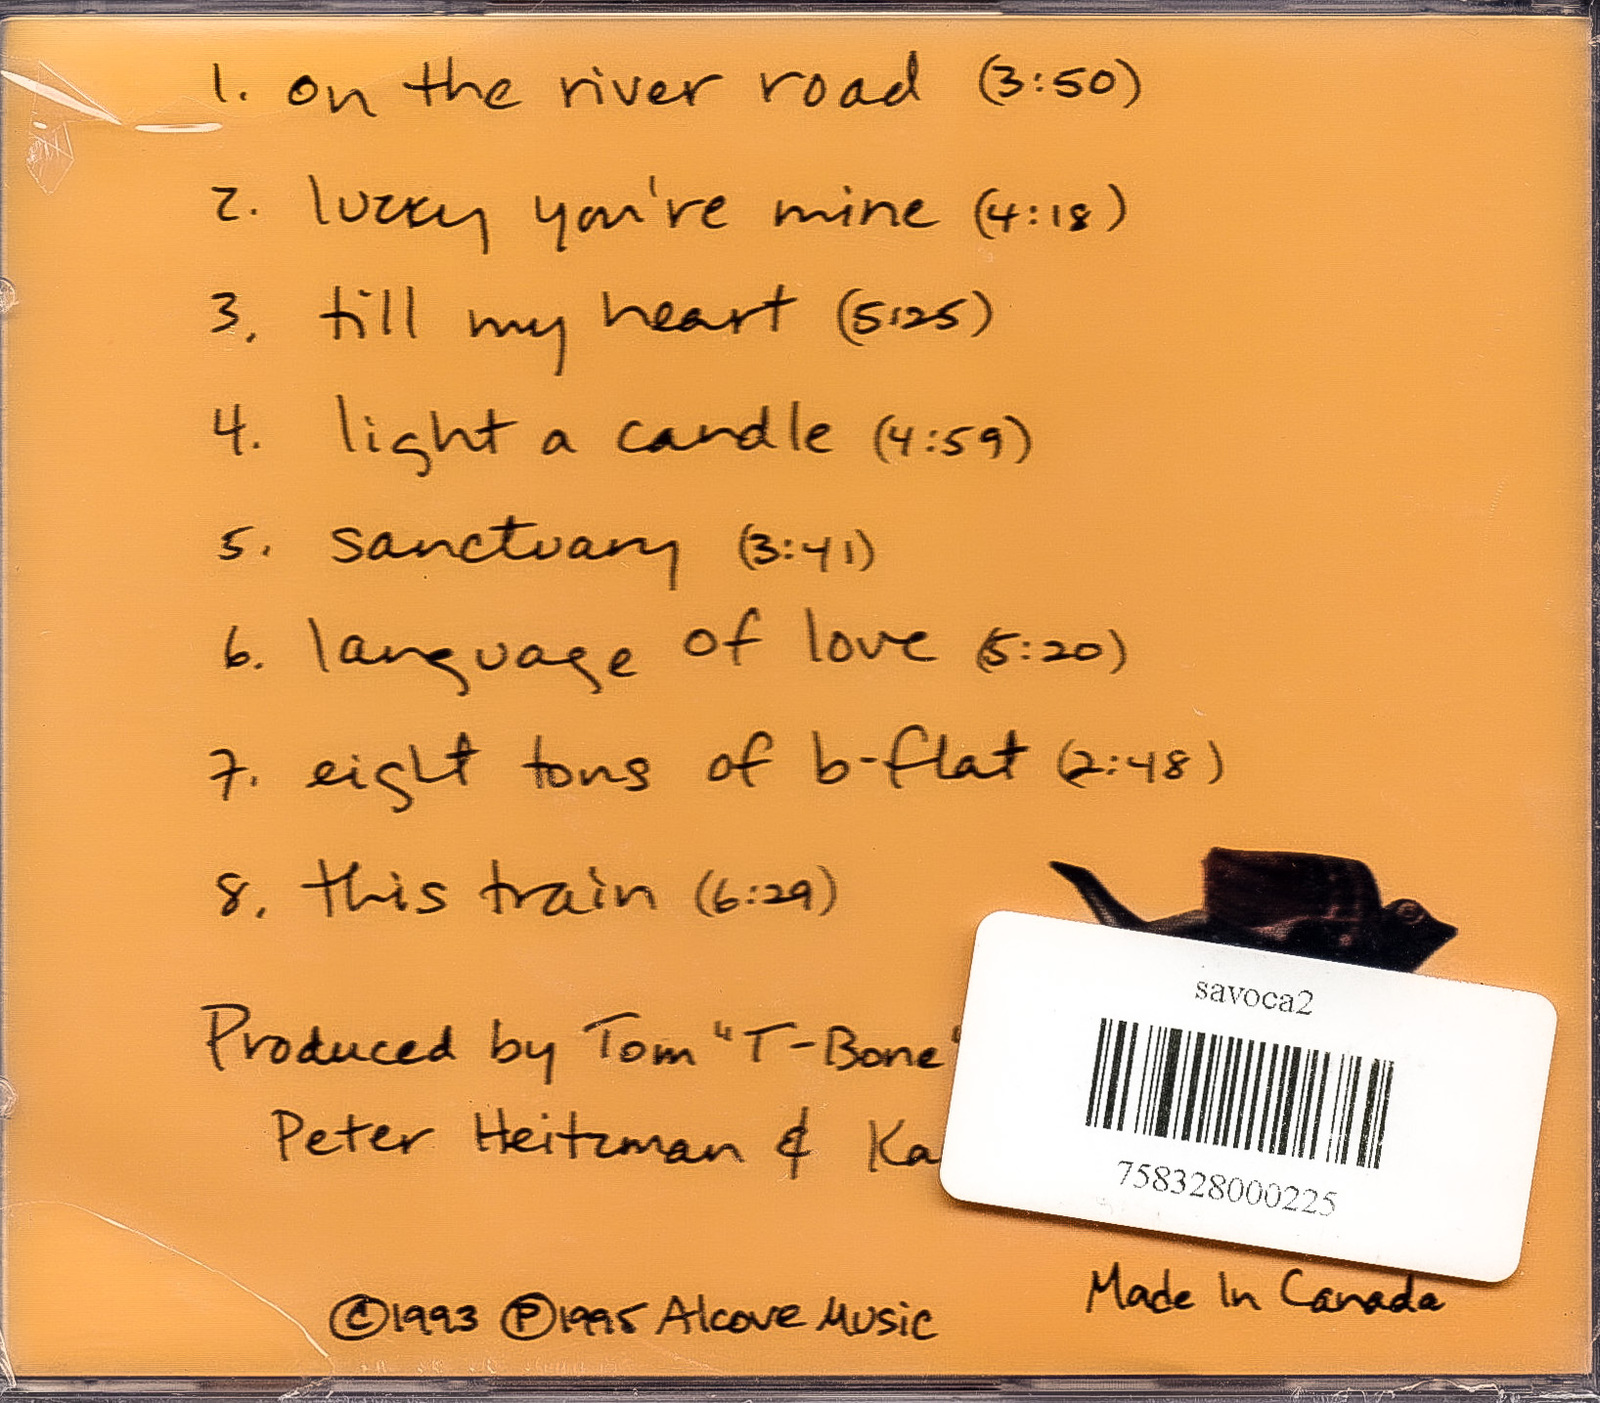 1. on the river road (3:50)
2. lucky you're mine (4:18)
3. till my heart (5:25)
4. light a candle (4:59)
5. sanctuary (3:41)
6. language of love (5:20)
7. eight tons of b-flat (2:48)
8. this train (6:29)
Produced by Tom "T-Bone"
Peter Heitzman & Ka
savoca2
758328000225
Made In Canada
©1993 ℗1995 Alcove Music